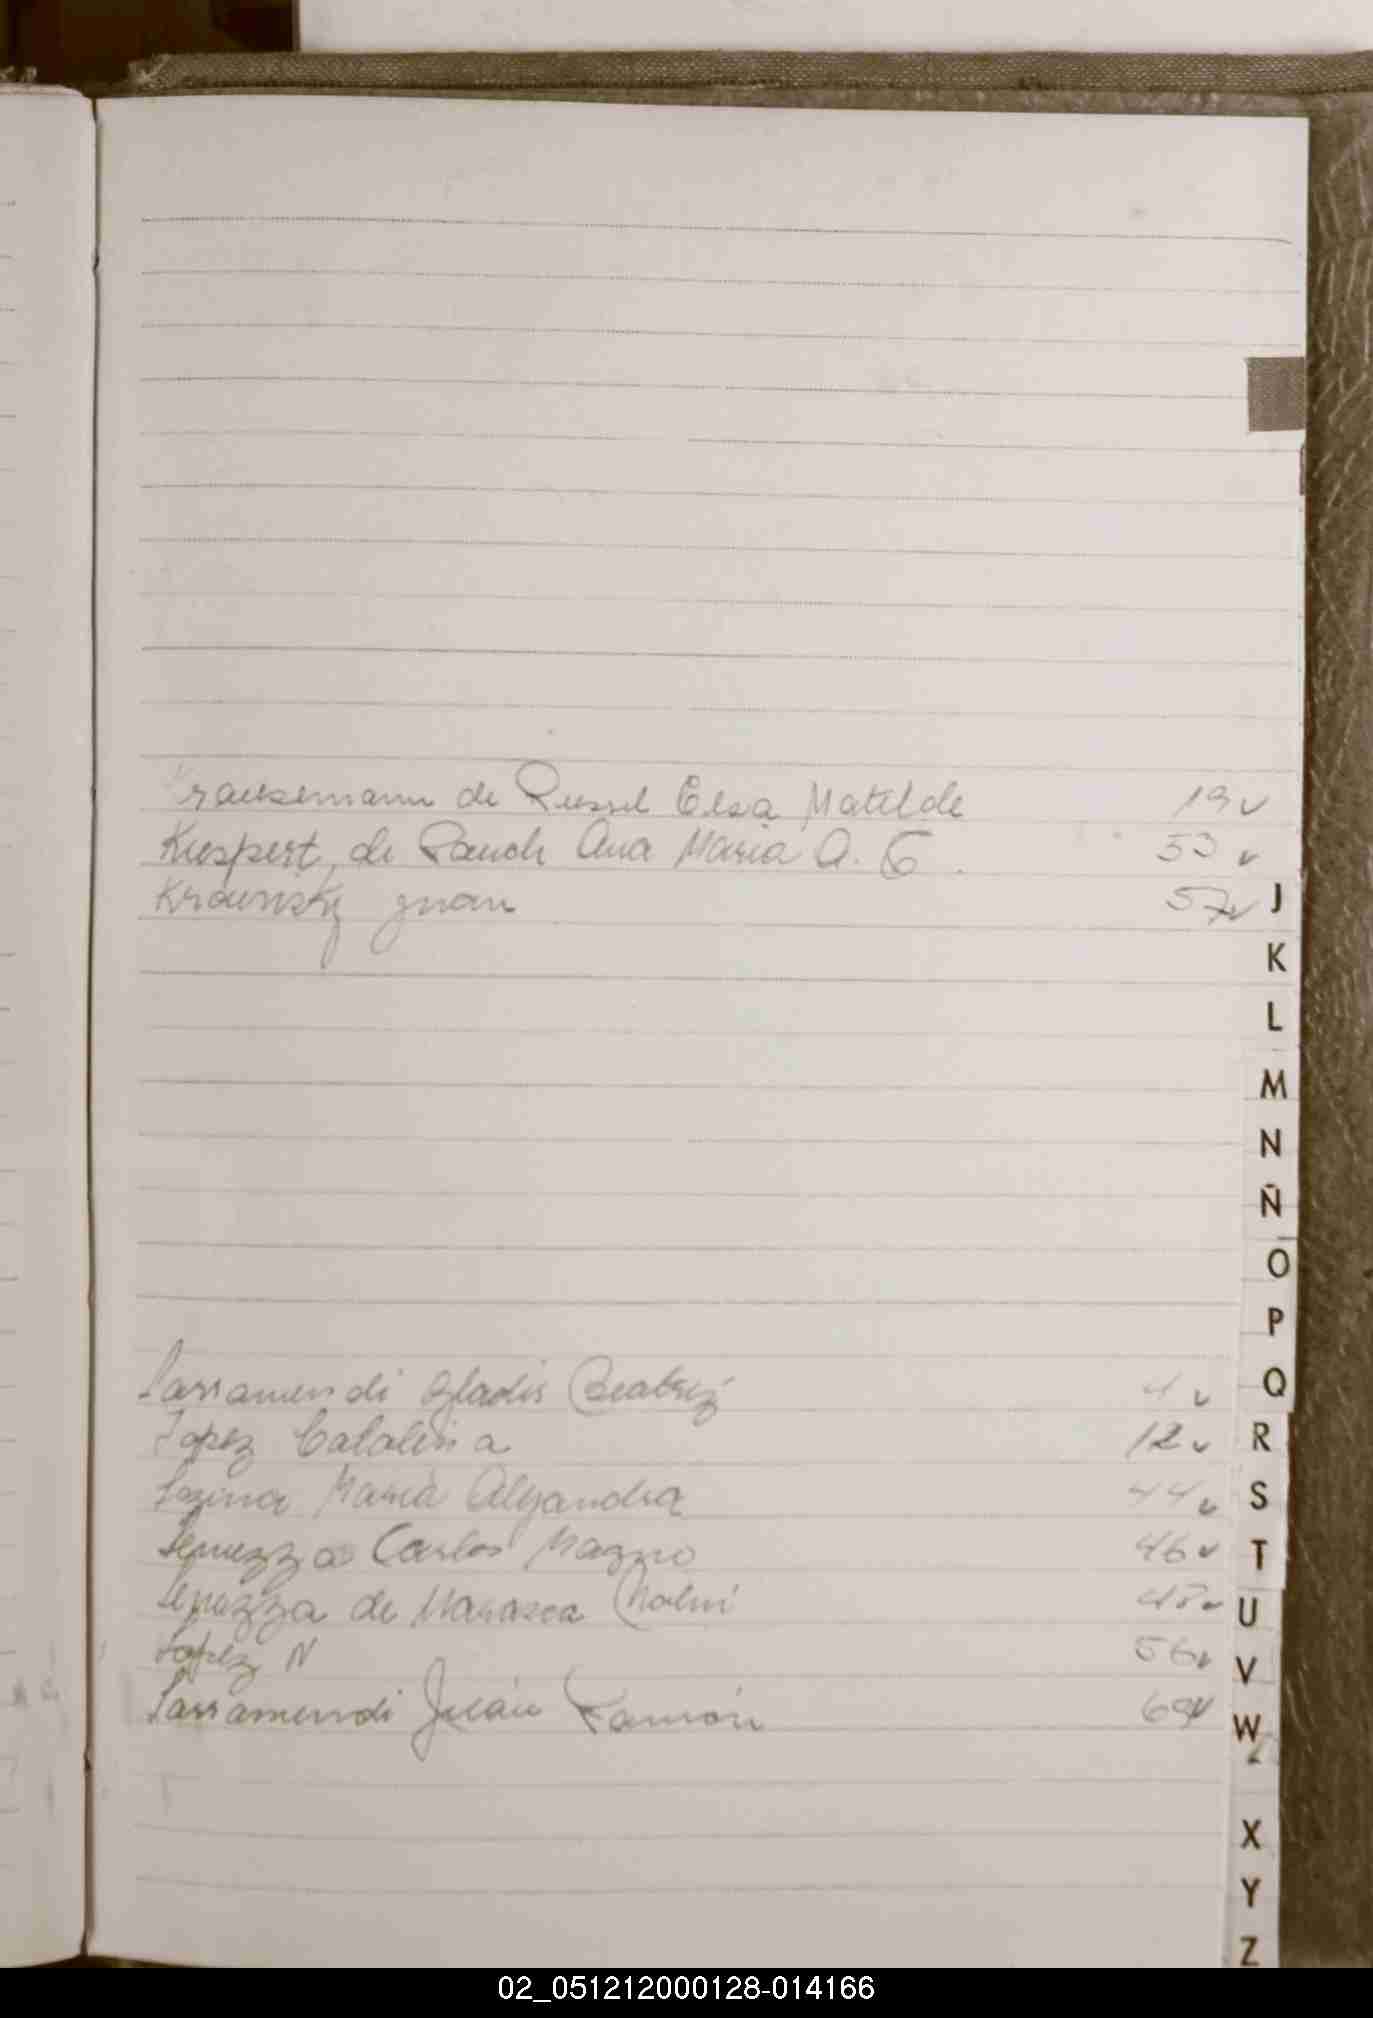 Krausemann de Russel Elsa Matilde 19
Kuspert de Rauch Ana Maria A. G. 53
Krawnsky Juan 57
J
K
L
M
N
Ñ
O
P
Q
Larramendi Gladis Beatriz 4
Lopez Catalina 12 R
Lezina Maria Alejandra 44 S
Lepuzza Carlos Mazzio 46 T
Lepuzza de Marasca Noemi U
Lopez N 56 V
Larramendi Julián Ramón W
X
Y
Z
02_051212000128-014166